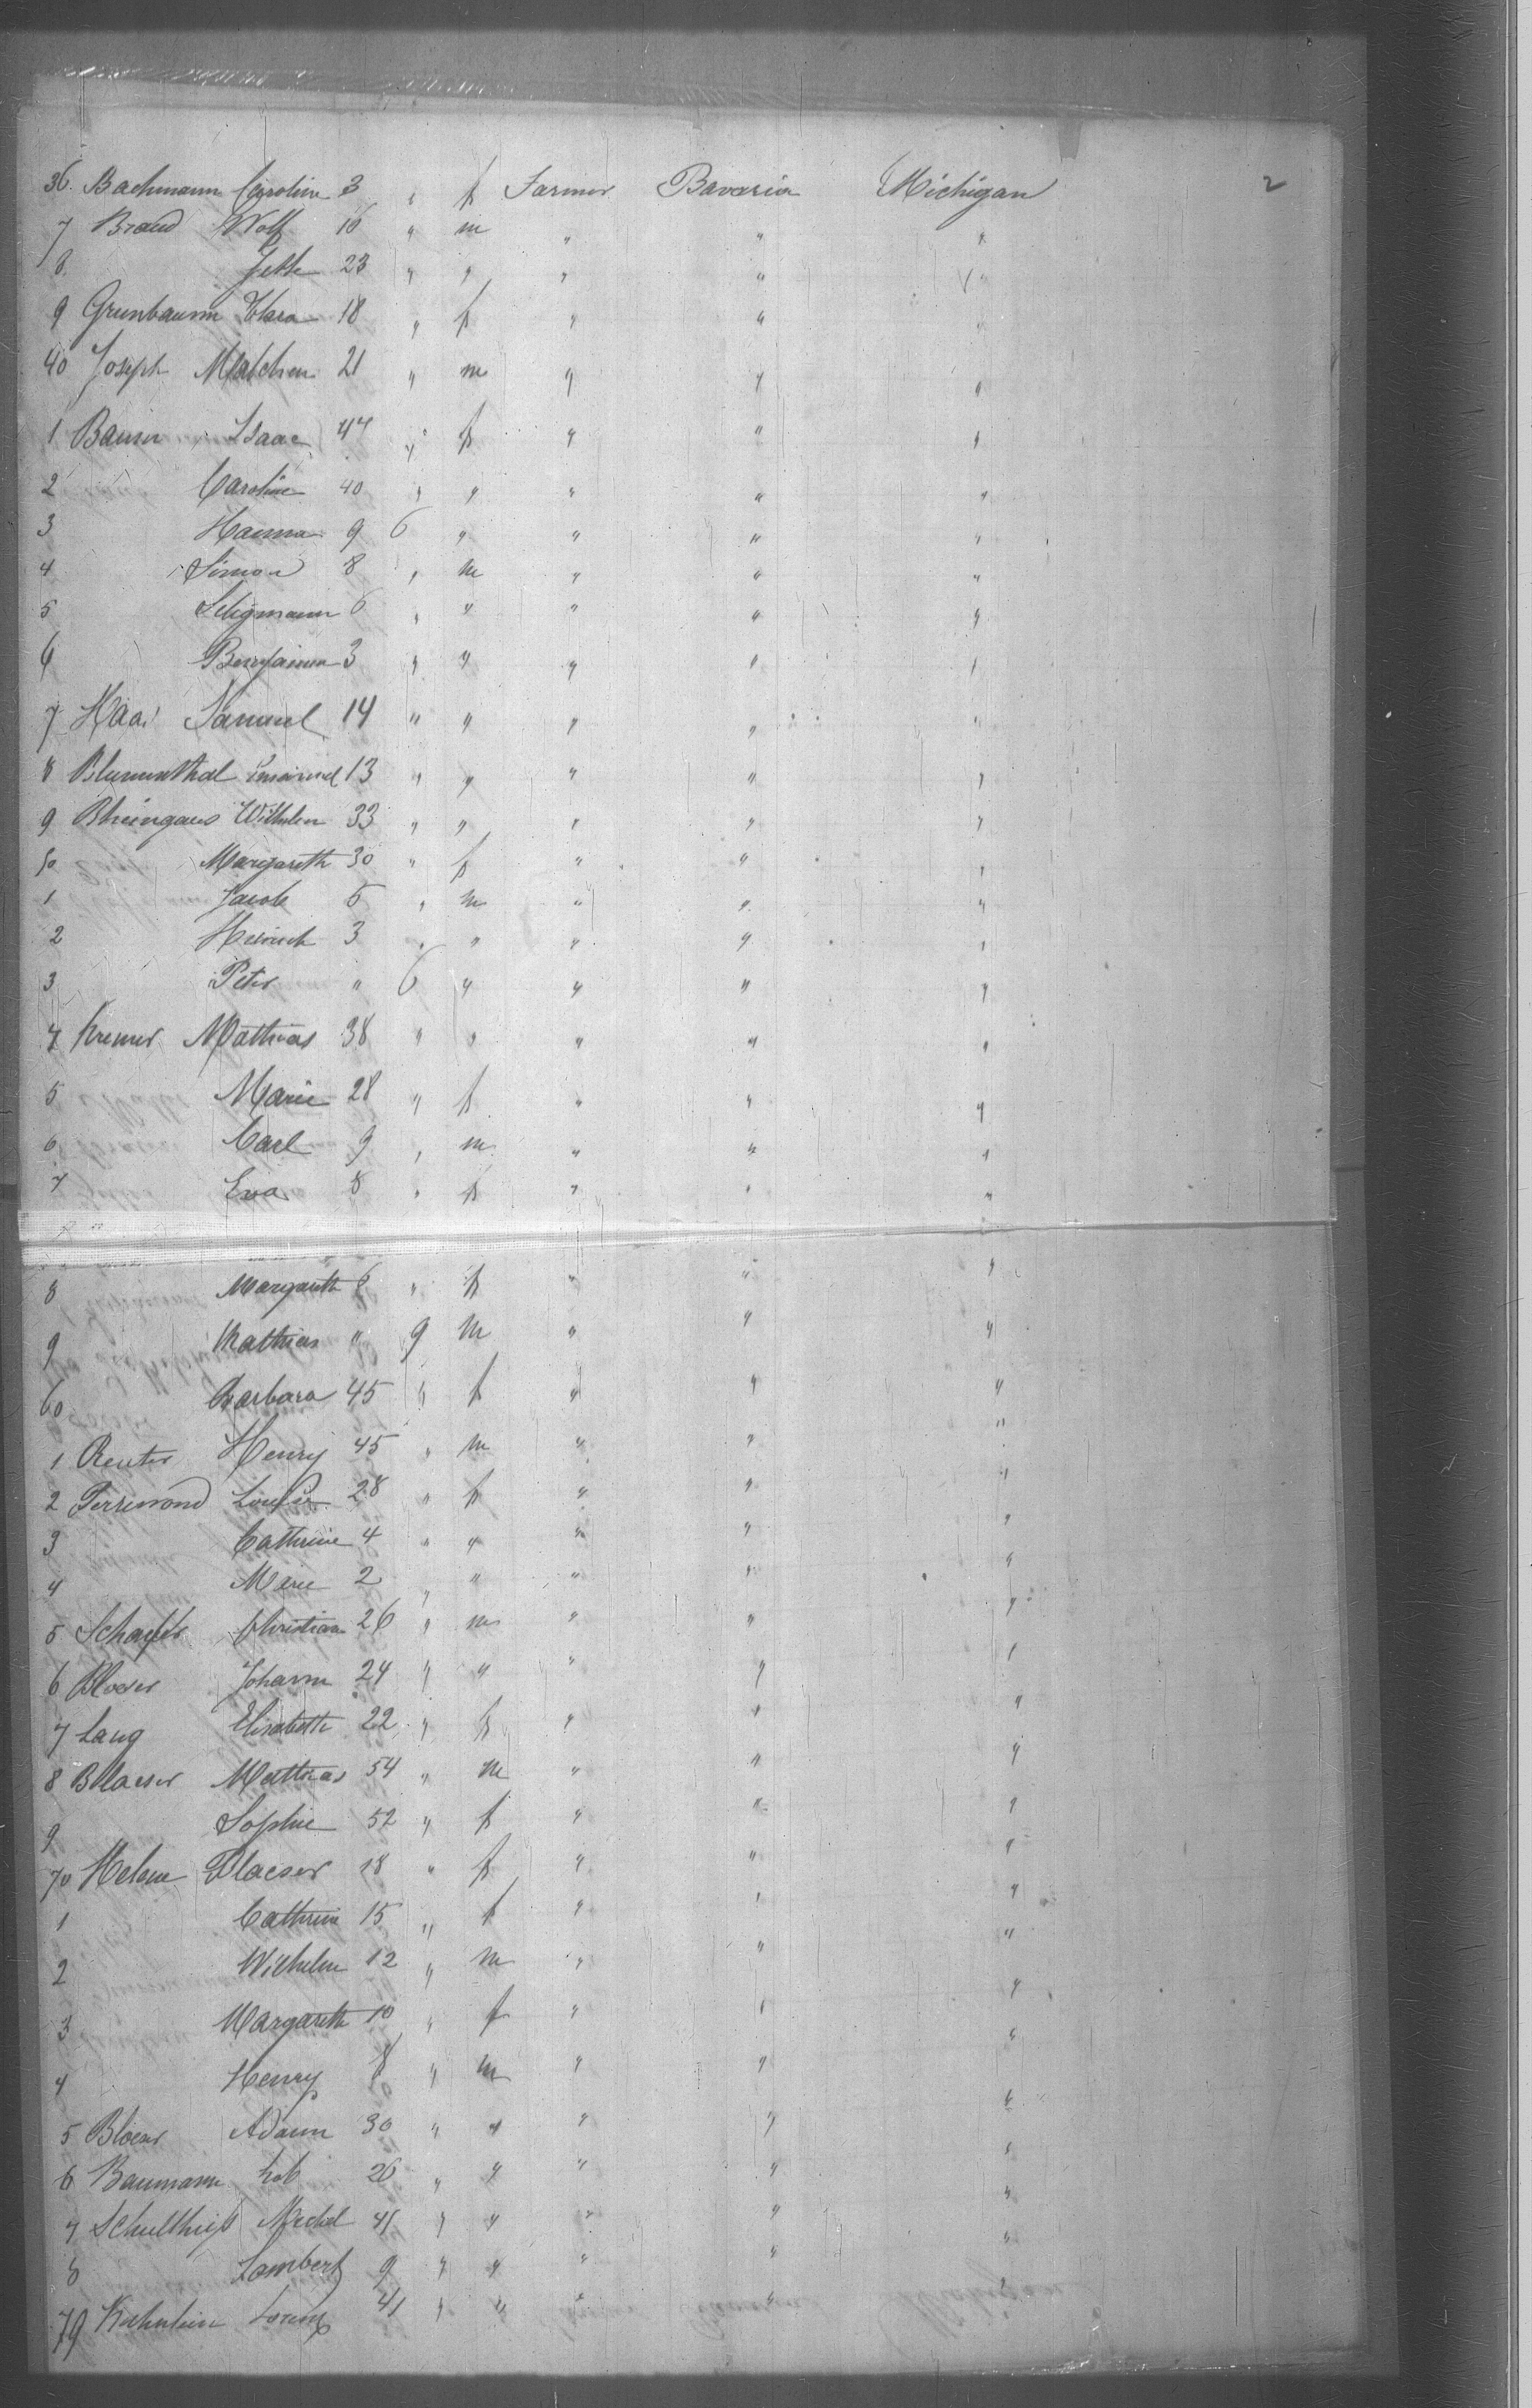 36. Bachmann Caroline 3 " f Farmer Bavaria Michigan 2
7 Braud Wolf 16 " m " " "
8 Jette 23 " " " " "
9 Grunbaum Clara 18 " f " " "
40 Joseph Malchen 21 " m " " "
1 Bauer Isaac 47 " f " " "
2 Caroline 40 " " " " "
3 Hanna 9 6 " " " "
4 Simon 8 " m " " "
5 Seligmann 6 " " " " "
6 Benjamin 3 " " " " "
7 Haas Samuel 14 " " " " "
8 Blumenthal Emanuel 13 " " " " "
9 Rheingans Wilhelm 33 " " " " "
50 Margareth 30 " f " " "
1 Jacob 5 " m " " "
2 Heinrich 3 " " " " "
3 Peter " 6 " " " "
4 Kremer Mathias 38 " " " " "
5 Marie 28 " f " " "
6 Carl 9 " m " " "
7 Eva 8 " f " " "
8 Margareth 6 " f " " "
9 Mathias " 9 m " " "
60 Barbara 45 " f " " "
1 Reuter Henry 45 " m " " "
2 Louise 28 " f " " "
3 Cathrine 4 " " " " "
4 Marie 2 " " " " "
5 Schaefer Christian 26 " m " " "
6 Johann 24 " " " " "
7 Lang Elisabeth 22 " f " " "
8 Blaeser Matthias 54 " m " " "
9 Sophie 52 " f " " "
70 Helene Blaeser 18 " f " " "
1 Cathrine 15 " f " " "
2 Wilhelm 12 " m " " "
3 Margareth 10 " f " " "
4 Henry 8 " m " " "
5 Adam 30 " " " " "
6 Baumann 26 " " " " "
7 Schultheiß Michel 41 " " " " "
8 Lambert 9 " " " " "
79 Kuhnlein Lorenz 41 " " " " "